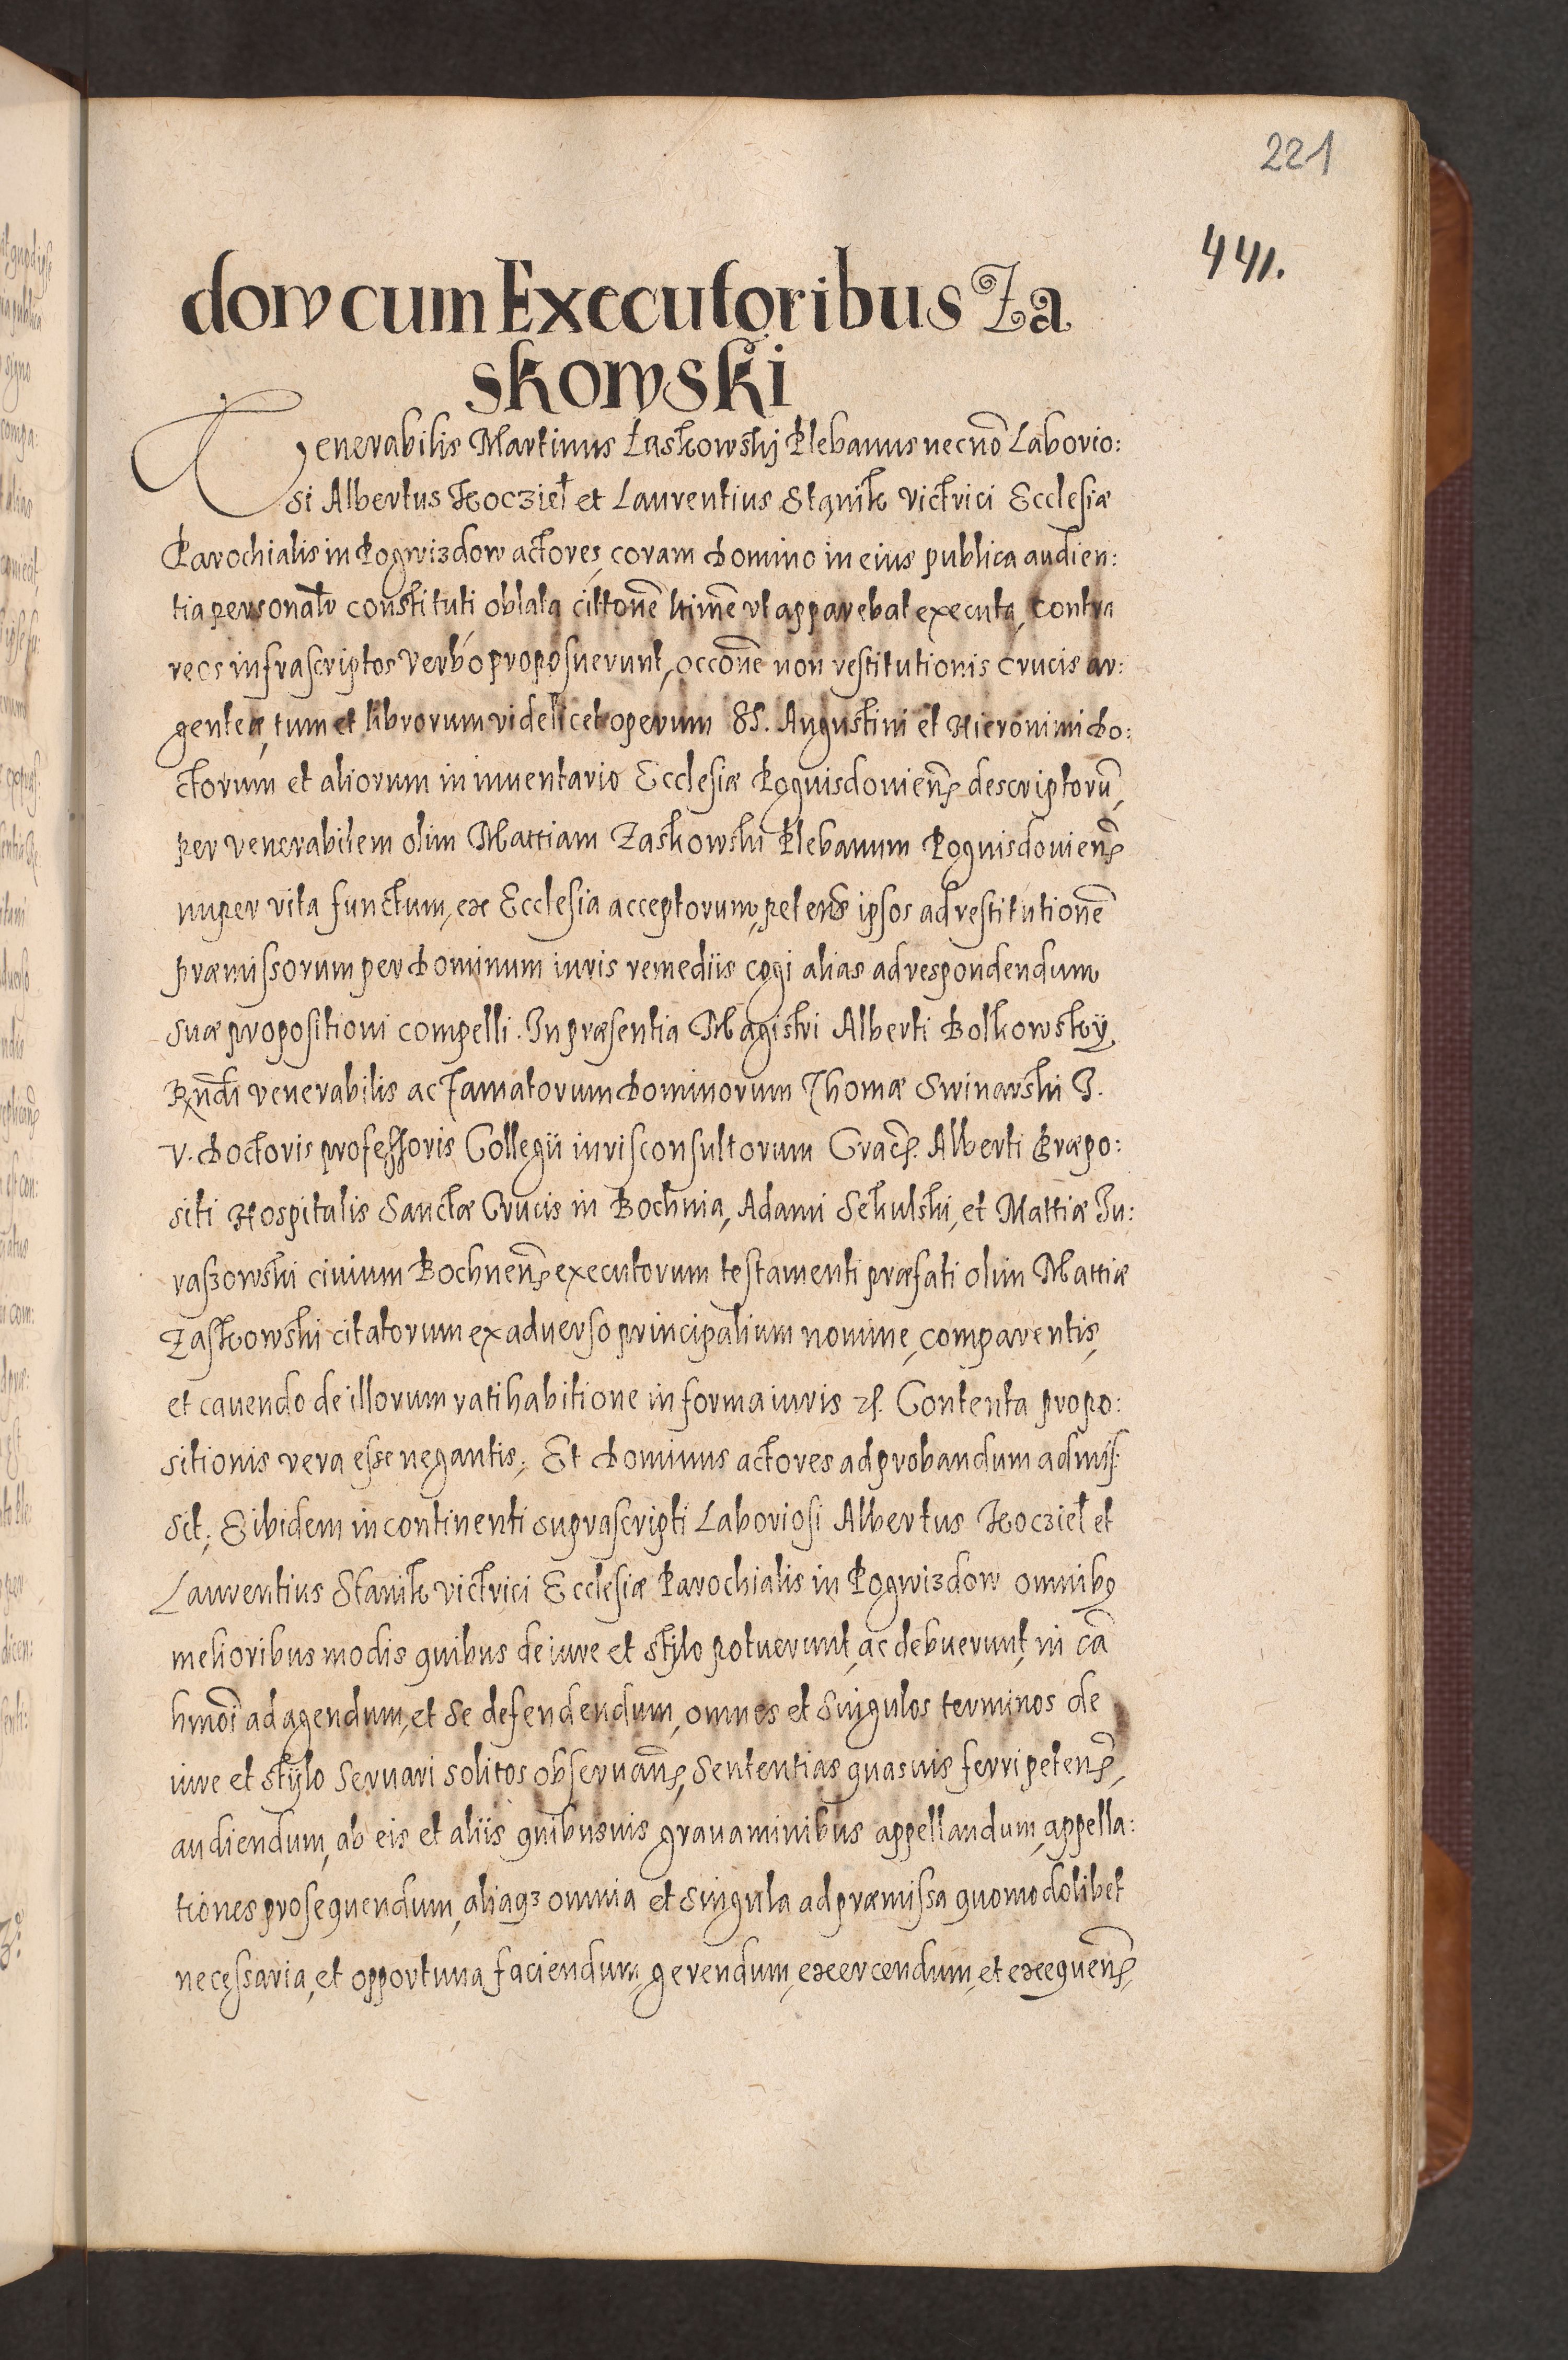 221
441.
dow cum Executoribus Za
skowski
Venerabilis Martinus Łaskowskj Plebanus necnō Laborio:
si Albertus Koczieł et Laurentius Stanik victrici Ecclesiæ
Parochialis in Pogwizdow actores, coram Domino in eius publica audien:
tia personalr constituti oblata cittonē ltimē vt apparebat executa, contra
reos infrascriptos verbo proposuerunt, occōne non restitutionis crucis ar:
genteæ, tum et librorum videlicet operum SS. Augustini et Hieronimi Do:
ctorum et aliorum in inuentario Ecclesiæ Poguisdouieñ descriptorū,
per venerabilem olim Mattiam Zaskowski Plebanum Poguisdouieñ
nuper vita functum, ex Ecclesia acceptorum, petens ipsos ad restitutionē
præmissorum per Dominum iuris remediis cogi alias ad respondendum
suæ propositioni compelli. In præsentia Magistri Alberti Bolkowskÿ
Rñdi venerabilis ac Famatorum Dominorum Thomæ Swinarski J.
V. Doctoris professoris Collegii iurisconsultorum Crac. Alberti Præpo:
siti Hospitalis Sanctæ Crucis in Bochnia, Adami Sekulski, et Mattiæ Ju:
raszowski ciuium Bochneñ executorum testamenti præfati olim Mattiæ
Zaskowski citatorum ex aduerso principalium nomine, comparentis,
et cauendo de illorum ratihabitione in forma iuris etc. Contenta propo:
sitionis vera esse negantis. Et Dominus actores ad probandum admis:
sit, Eibidem in continenti suprascripti Laboriosi Albertus Koczieł et
Laurentius Stanik victrici Ecclesiæ Parochialis in Pogwizdow omnibꝫ
melioribus modis quibus de iure et stylo potuerunt, ac debuerunt, in cā
hmōi ad agendum, et se defendendum, omnes et singulos terminos de
iure et stÿlo seruari solitos obseruañ, sententias quasuis ferri peteñ,
audiendum, ab eis et aliis quibusuis grauaminibus appellandum, appella:
tiones prosequendum, aliaqꝫ omnia et singula ad præmissa quomodolibet
necessaria, et opportuna faciendum, gerendum, exercendum, et exequeñ,